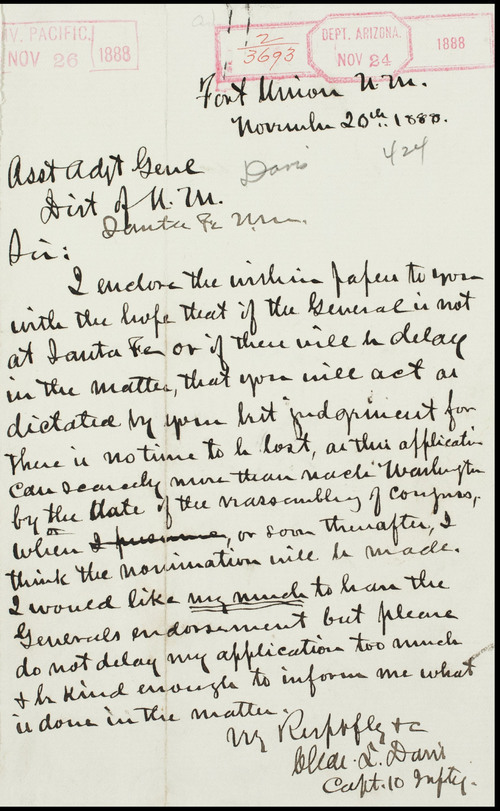 V. PACIFIC.
NOV 26 1888
2
3693
DEPT. ARIZONA.
NOV 24 1888
Fort Union N.M.
November 20th. 1888.
Davis 424
Asst Adjt Genl
Dist of N.M.
Santa Fe N.M.
Sir:
I endorse the within papers to you
with the hope that if the General is not
at Santa Fe, or if there will be delay
in the matter, that you will act as
dictated by your best judgment for
there is no time to be lost, as this application
can scarcely more than reach Washington
by the date of the reassembling of Congress,
when on I presume, or soon thereafter, I
think the nomination will be made.
I would like very much to have the
Generals endorsement but please
do not delay my application too much
& be kind enough to inform me what
is done in the matter.
Vy Respctfly &c
Chas. L. Davis
Capt. 10 Infty.